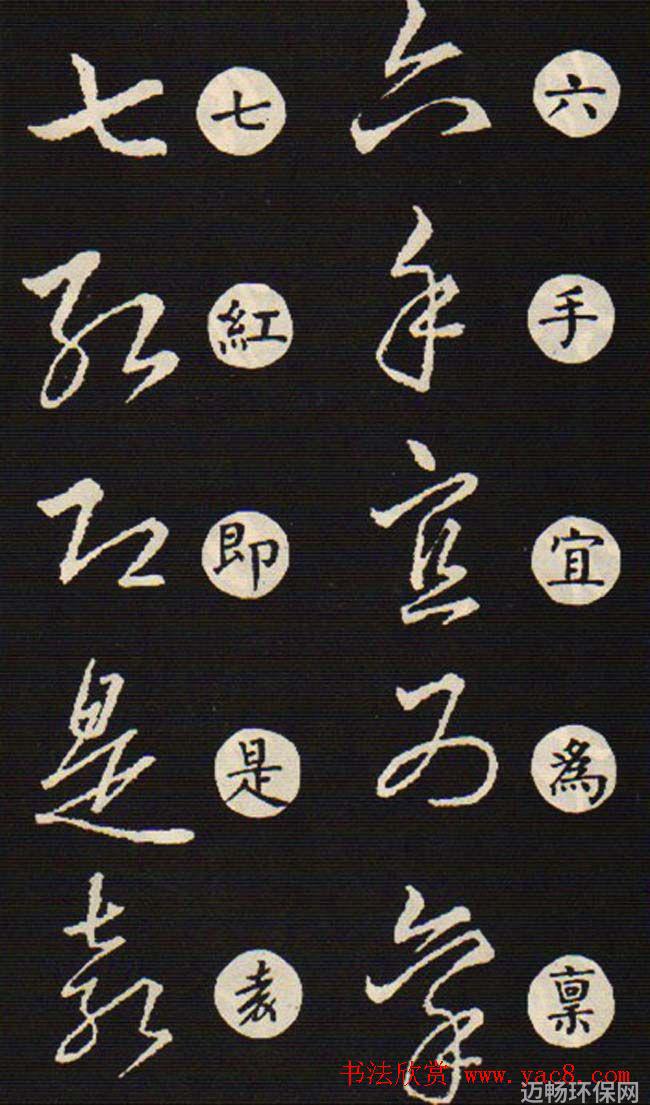 六手宜為禀
六手宜為禀
七紅即是袁
七紅即是袁
书法欣赏 www.yac8.com
迈畅环保网